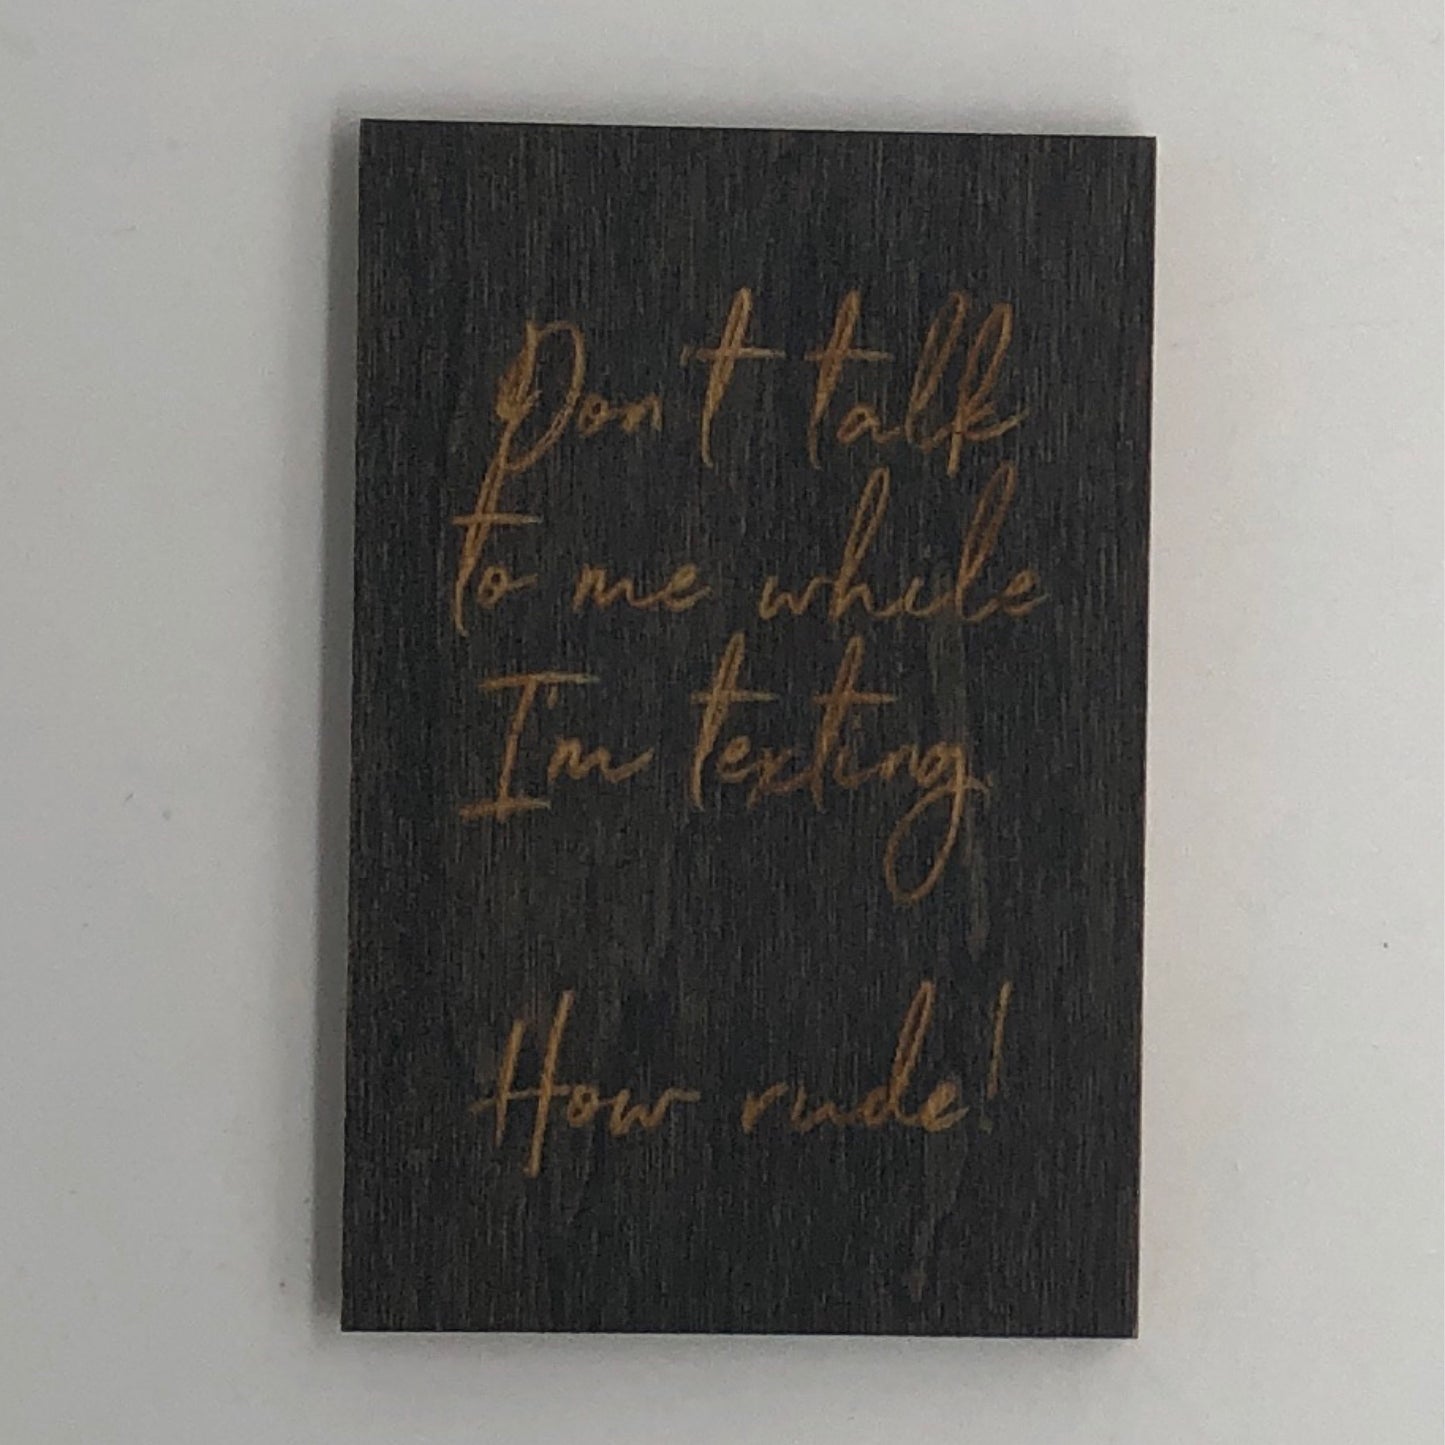 Don't talk
to me while
I'm texting.
How rude!